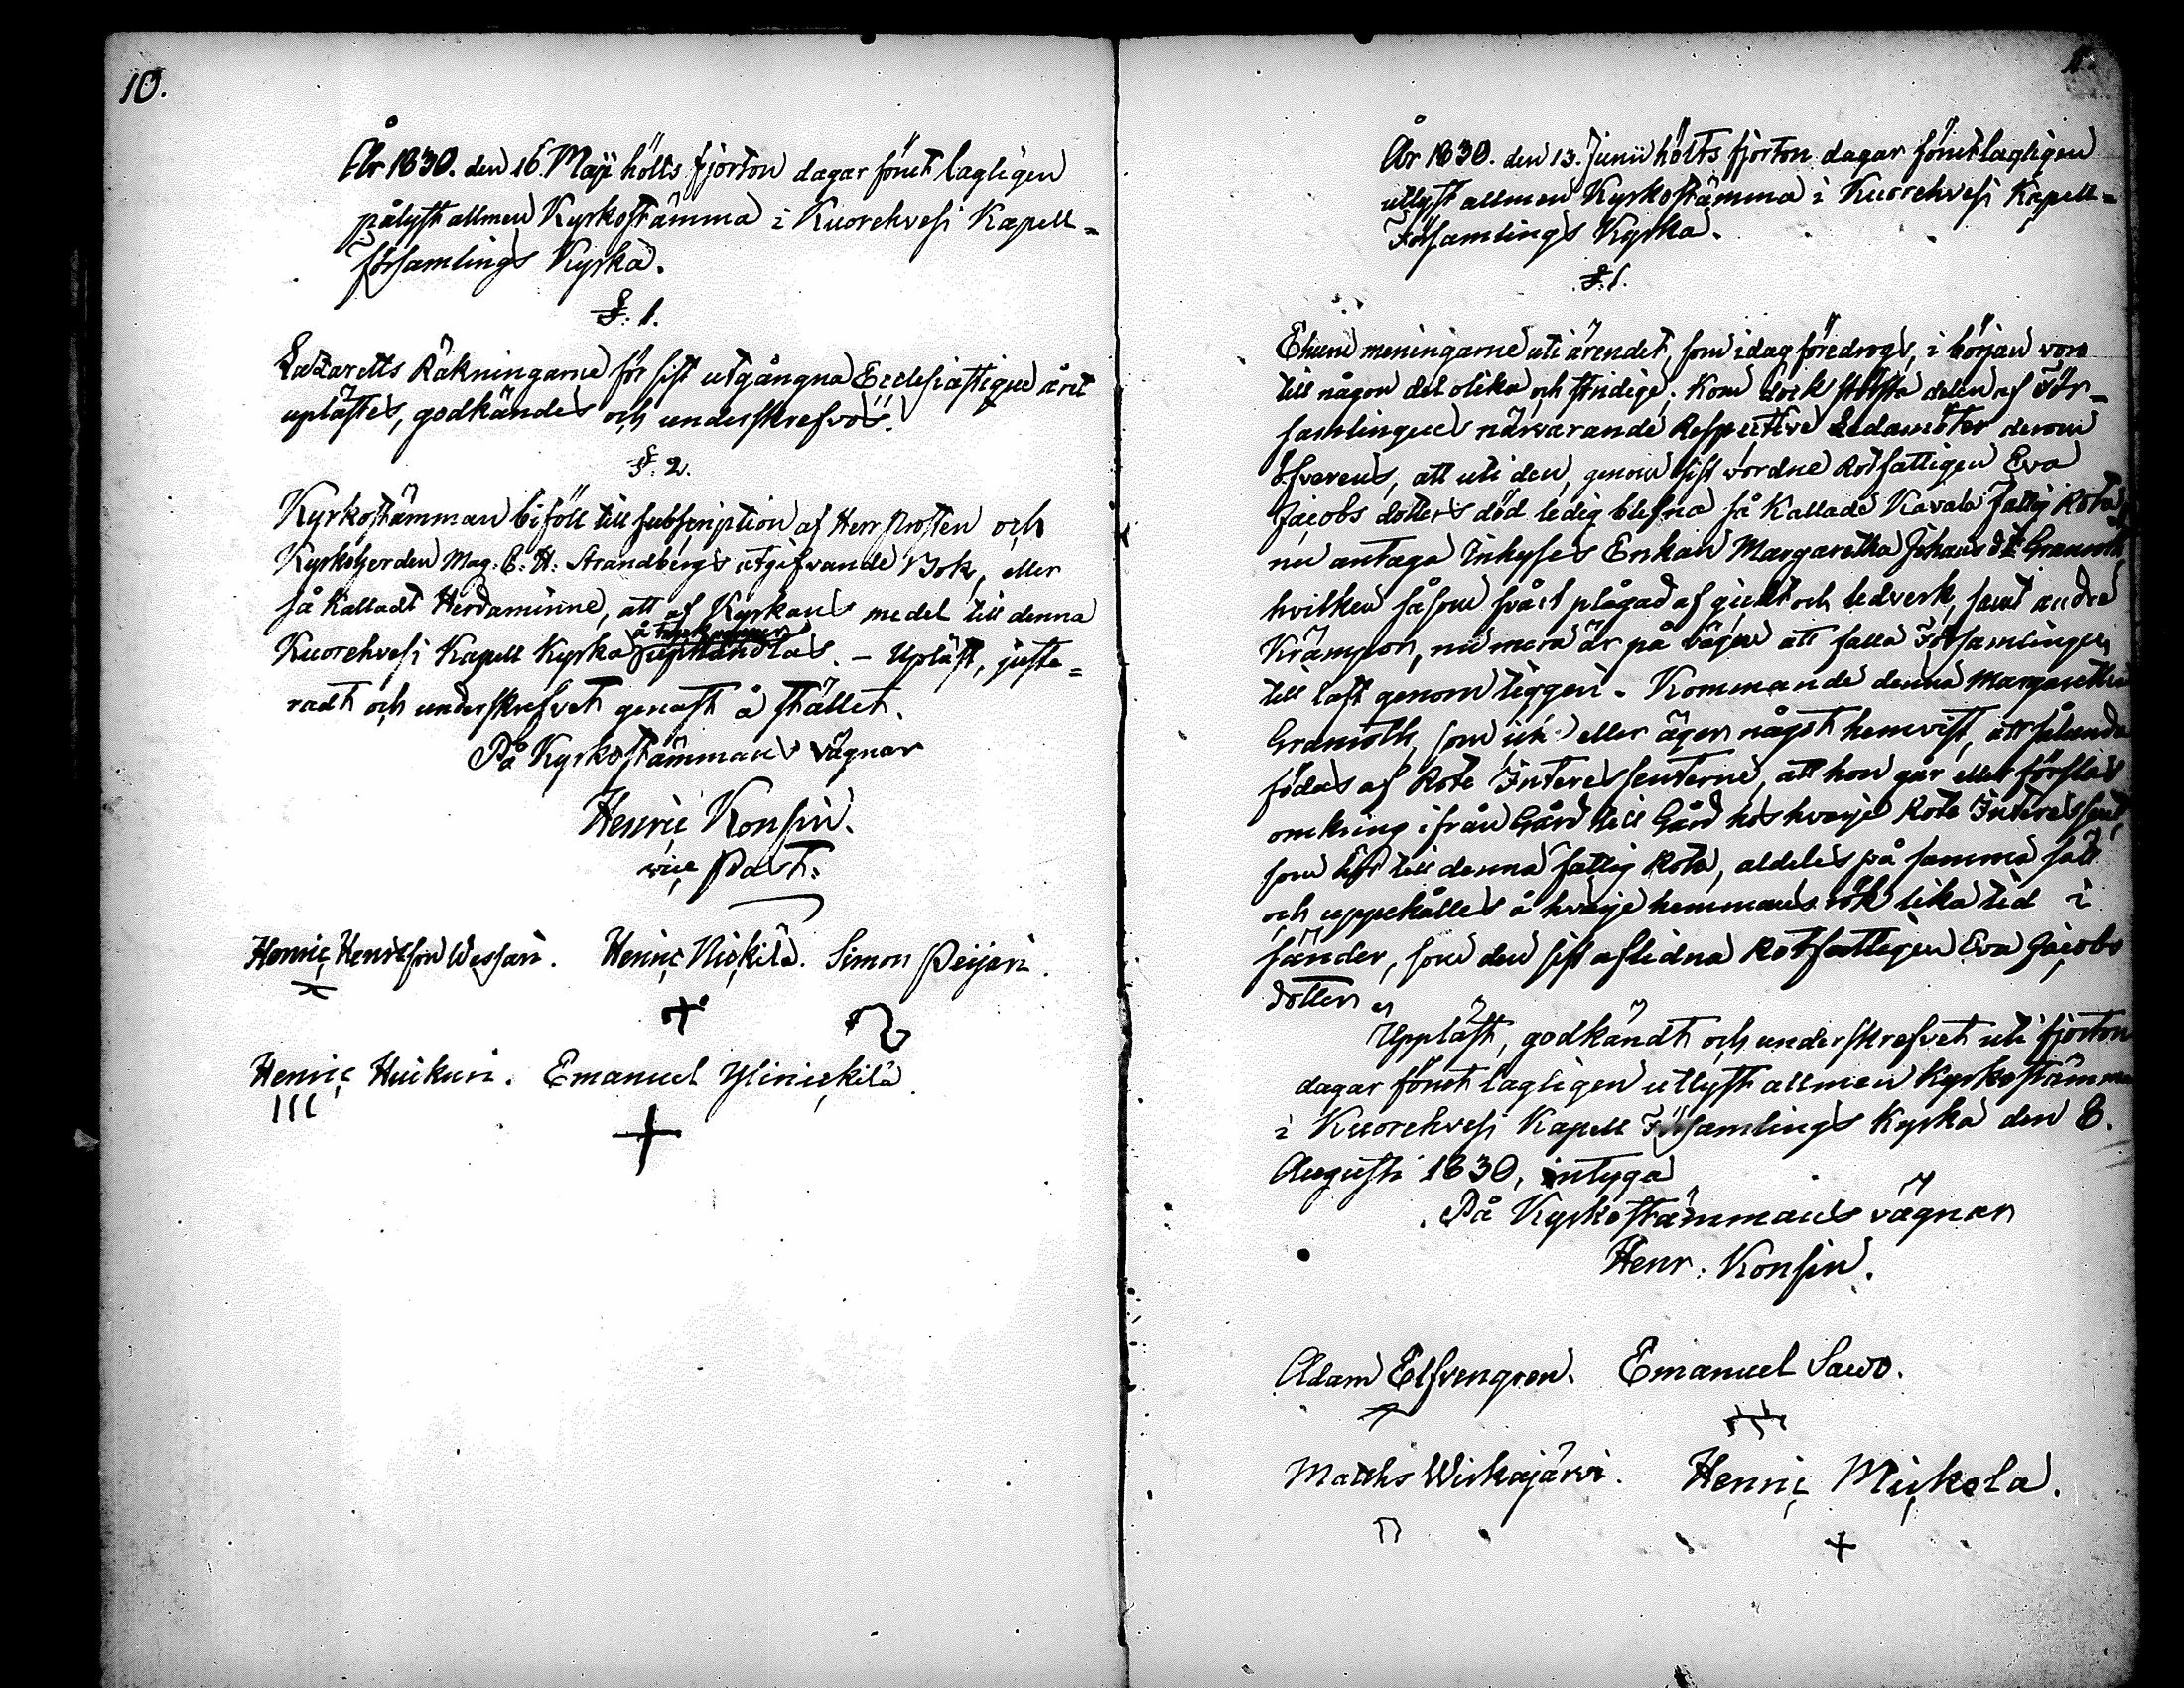 10.
År 1830. den 16. Maji hölts fjorton dagar förut lagligen
pålyst allmen Kyrkostämma i Kuorehvesi Kapell=
församlings Kyrka.
§. 1.
Lazaretts Räkningarne för sist utgångna Ecclesiastique året
uplästes, godkändes och underskrefvos.
§. 2.
Kyrkostämman biföll till subscription af Herr Prosten och
Kyrkoherden Mag. C. H. Strandbergs utgifvande Bok, eller
så kalladt Herdaminne, att af Kyrkans medel till denna
Kuorehvesi Kapell Kyrka upphandlas. – Upläst, juste=
radt och underskrefvet genast å stället.
På Kyrkostämmans vägnar
Henric Konsin.
vice Past:
Henric Henricsson Wessari. Henric Nickilä. Simon Peijari.
Henric Huikuri. Emanuel Ylinickilä.
År 1830. den 13. Junii hölts fjorton dagar förut lagligen
utlyst allmen Kyrkostämma i Kuorehvesi Kapell=
Församlings Kyrka.
§. 1.
Ehuru meningarne uti ärendet, som idag föredrogs, i början voro
till någon del olika och stridige; Kom dock största delen af För=
samlingens närvarande Respective Ledamöter derom
öfverens, att uti den, genom sist vordne Rotfattigen Eva
Jacobs dotters död ledig blefna så kallade Kavala Fattig Rota
nu antaga Inhyses Enkan Margaretha Johans dr Granroth
hvilken såsom svårt plågad af gickt och ledverk, samt andre
Krämpor, nu mera är på vägen att falla Församlingen
till last genom liggeri. Kommande denna Margaretha
Granroth, som icke eller äger något hemvist, att sålunda
födas af Rote Interessenterne, att hon går eller förslas
omkring ifrån Gård till Gård hos hvarje Rote Interessent,
som hör till denna fattig Rota, aldeles på samma sätt
och uppehålles å hvarje hemmans rök lika tid i
sänder, som den sist aflidna Rotfattigen Eva Jacobs
dotter.
Uppläst, godkändt och underskrefvet uti fjorton
dagar förut lagligen utlyst allmen Kyrkostämma
i Kuorehvesi Kapell Församlings Kyrka den 8.
Augusti 1830, intyga
På Kyrkostämmans vägnar
Henr. Konsin.
Adam Elfvengren. Emanuel Sawo.
Matths Wirkajärvi. Henric Mickola.